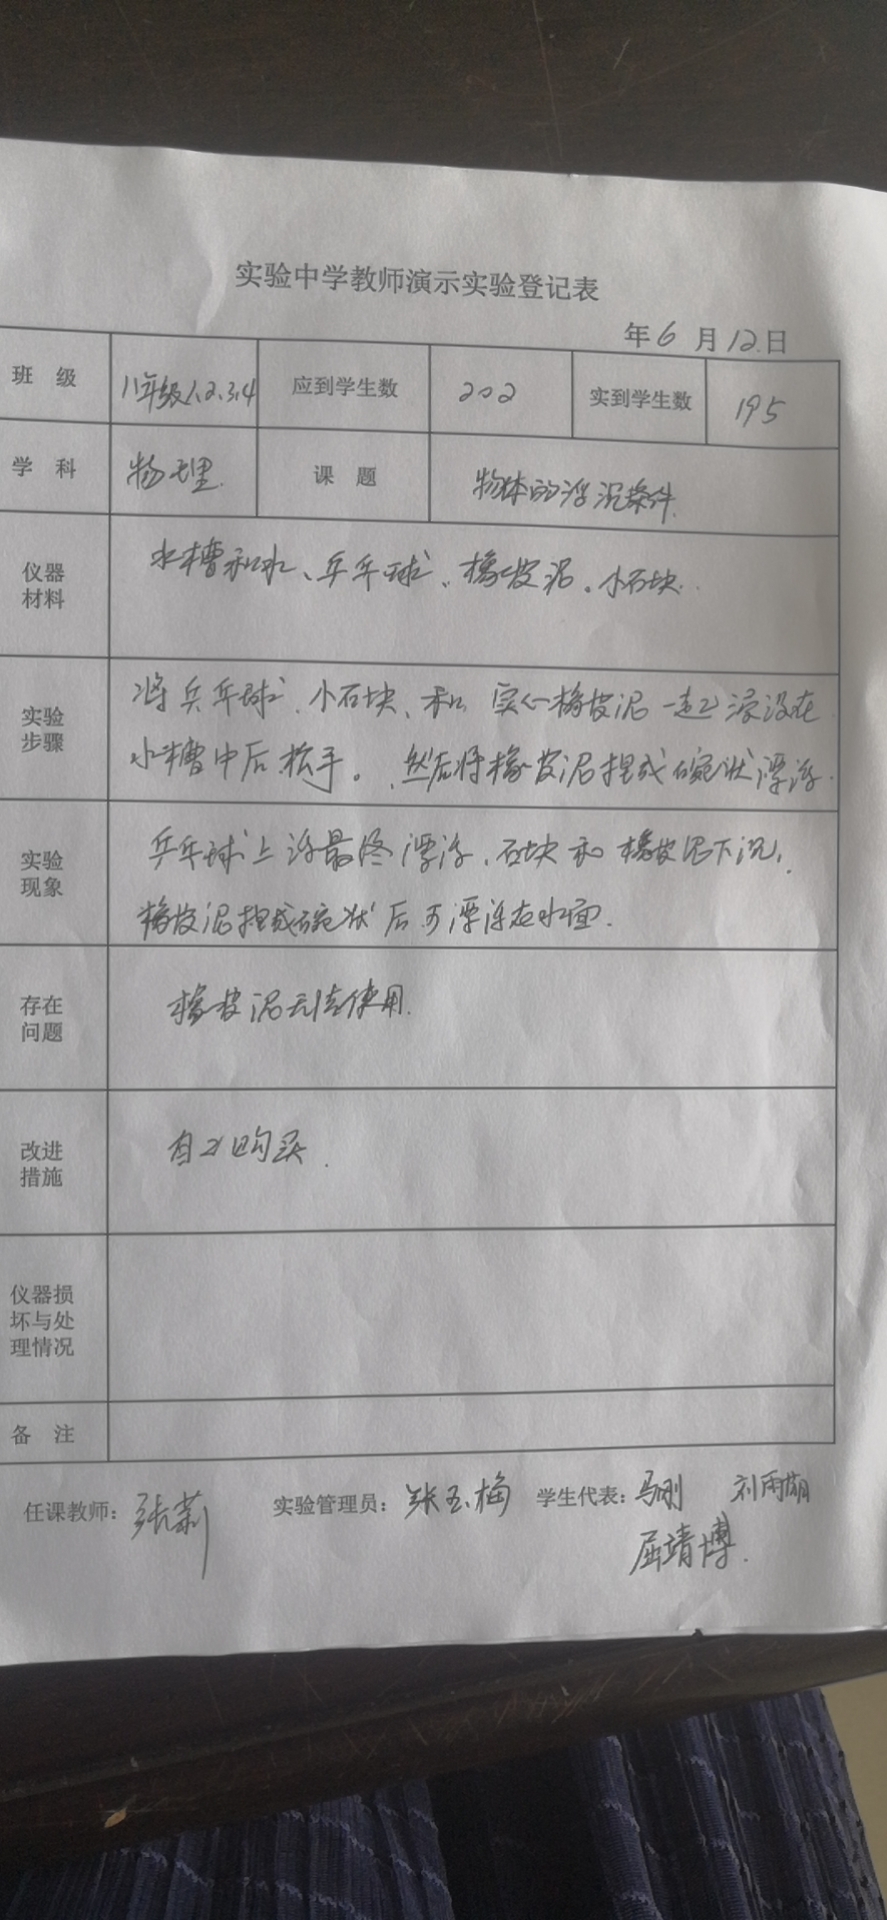 实验中学教师演示实验登记表
年6月12日
班 级 八年级1.2.3.4 应到学生数 202 实到学生数 195
学 科 物理 课 题 物体的浮沉条件
仪器材料 水槽和水、乒乓球、橡皮泥。小石块.
实验步骤 将乒乓球、小石块、和实心橡皮泥一起浸没在
水槽中后松手。然后将橡皮泥捏成碗状漂浮.
实验现象 乒乓球上浮最终漂浮,石块和橡皮泥下沉,
橡皮泥捏成碗状后可漂浮在水面.
存在问题 橡皮泥无法使用.
改进措施 自己购买.
仪器损坏与处理情况
备 注
任课教师: 张莉 实验管理员: 张玉梅 学生代表: 马刚 刘雨
屈靖博.